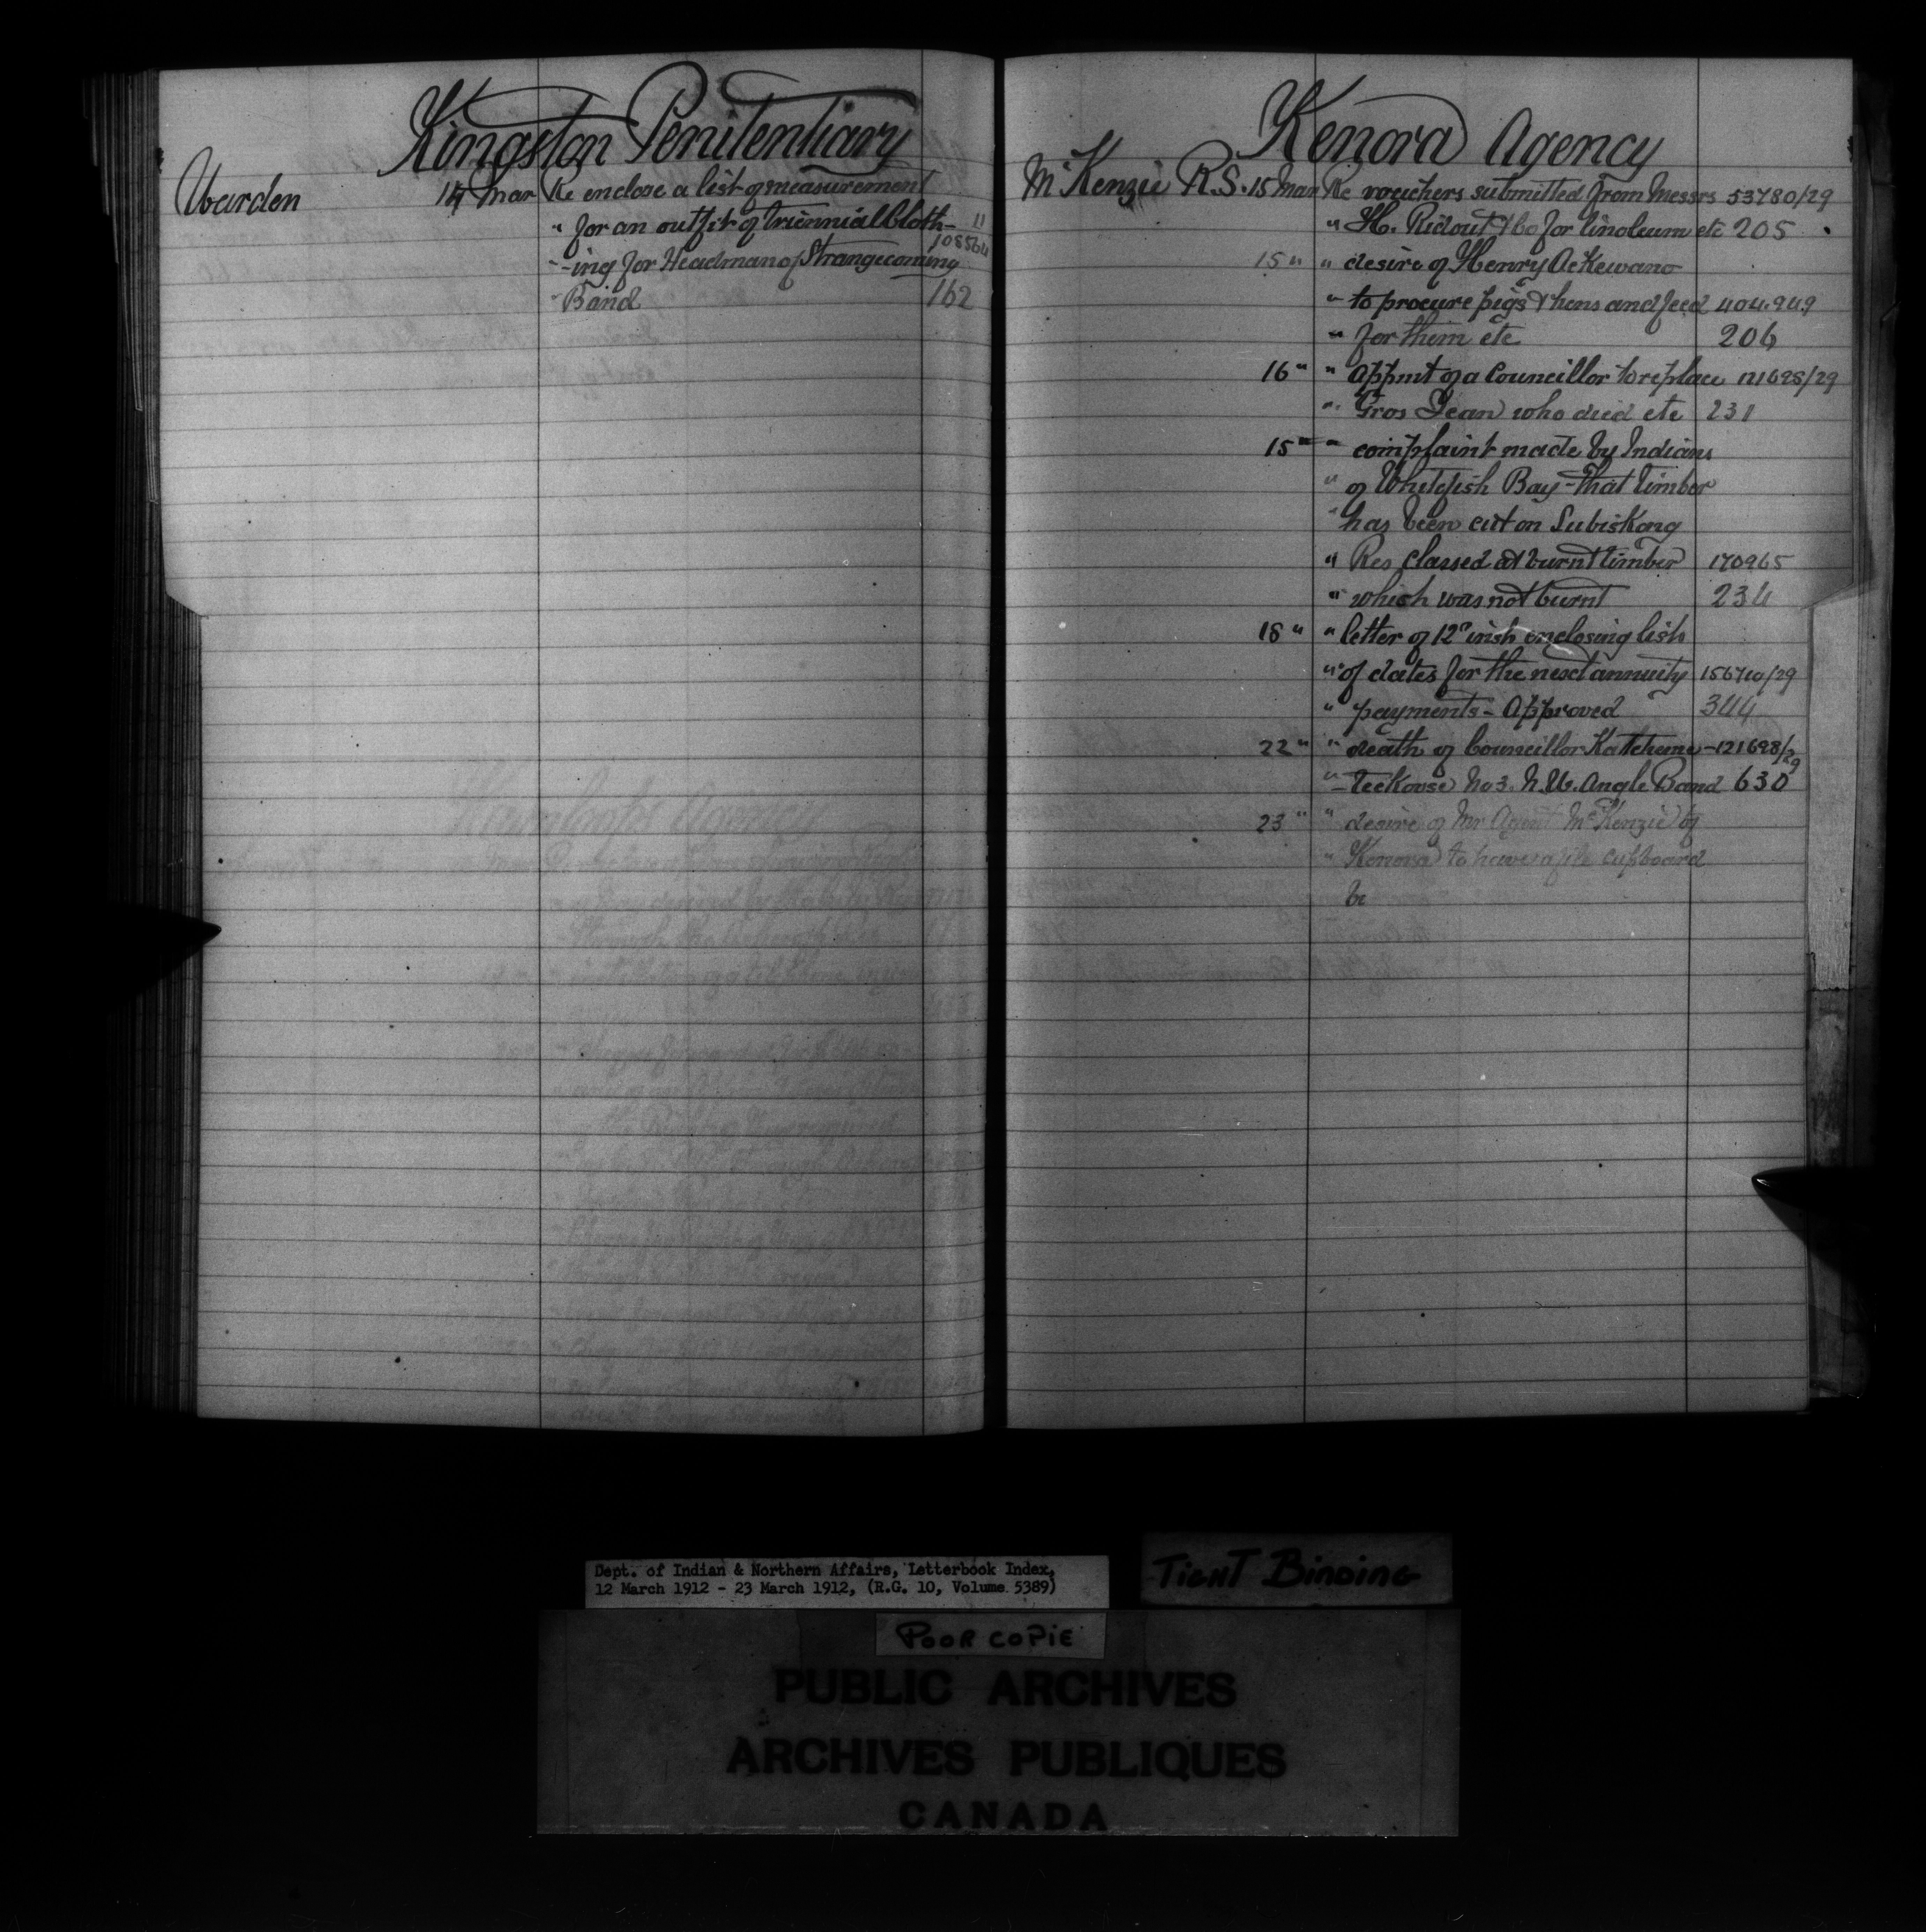 Kingston Penitentiary
Warden 14 Mar Re enclose a list of measurement
" for an outfit of triennial Cloth- 11
" -ing for Headman of Strangecoming 108564
" Band 162
Kenora Agency
McKenzie R.S. 15 Mar Re vouchers submitted from Messrs 53780/29
" H. Ridout & Co for linoleum etc 205
15 " " desire of Henry Ackewano
" to procure pigs & hens and feed 404.949
" for them etc 206
16 " " Appmt of a Councillor to replace 121698/29
" Gros Jean who died etc 231
15 " " complaint made by Indians
" of Whitefish Bay - That timber
" has been cut on Subiskong
" Res classed as burnt timber 170965
" which was not burnt 234
18 " " letter of 12th inst enclosing list
" of dates for the next annuity 156710/29
" payments - Approved 344
22 " " death of Councillor Katcheme- 121698/29
" -teekouse No 3. N.W. Angle Band 630
23 " " desire of Mr Agent McKenzie of
" Kenora to have a file cupboard
Dept. of Indian & Northern Affairs, Letterbook Index,
12 March 1912 - 23 March 1912, (R.G. 10, Volume 5389)
TIGHT BINDING
POOR COPIE
PUBLIC ARCHIVES
ARCHIVES PUBLIQUES
CANADA